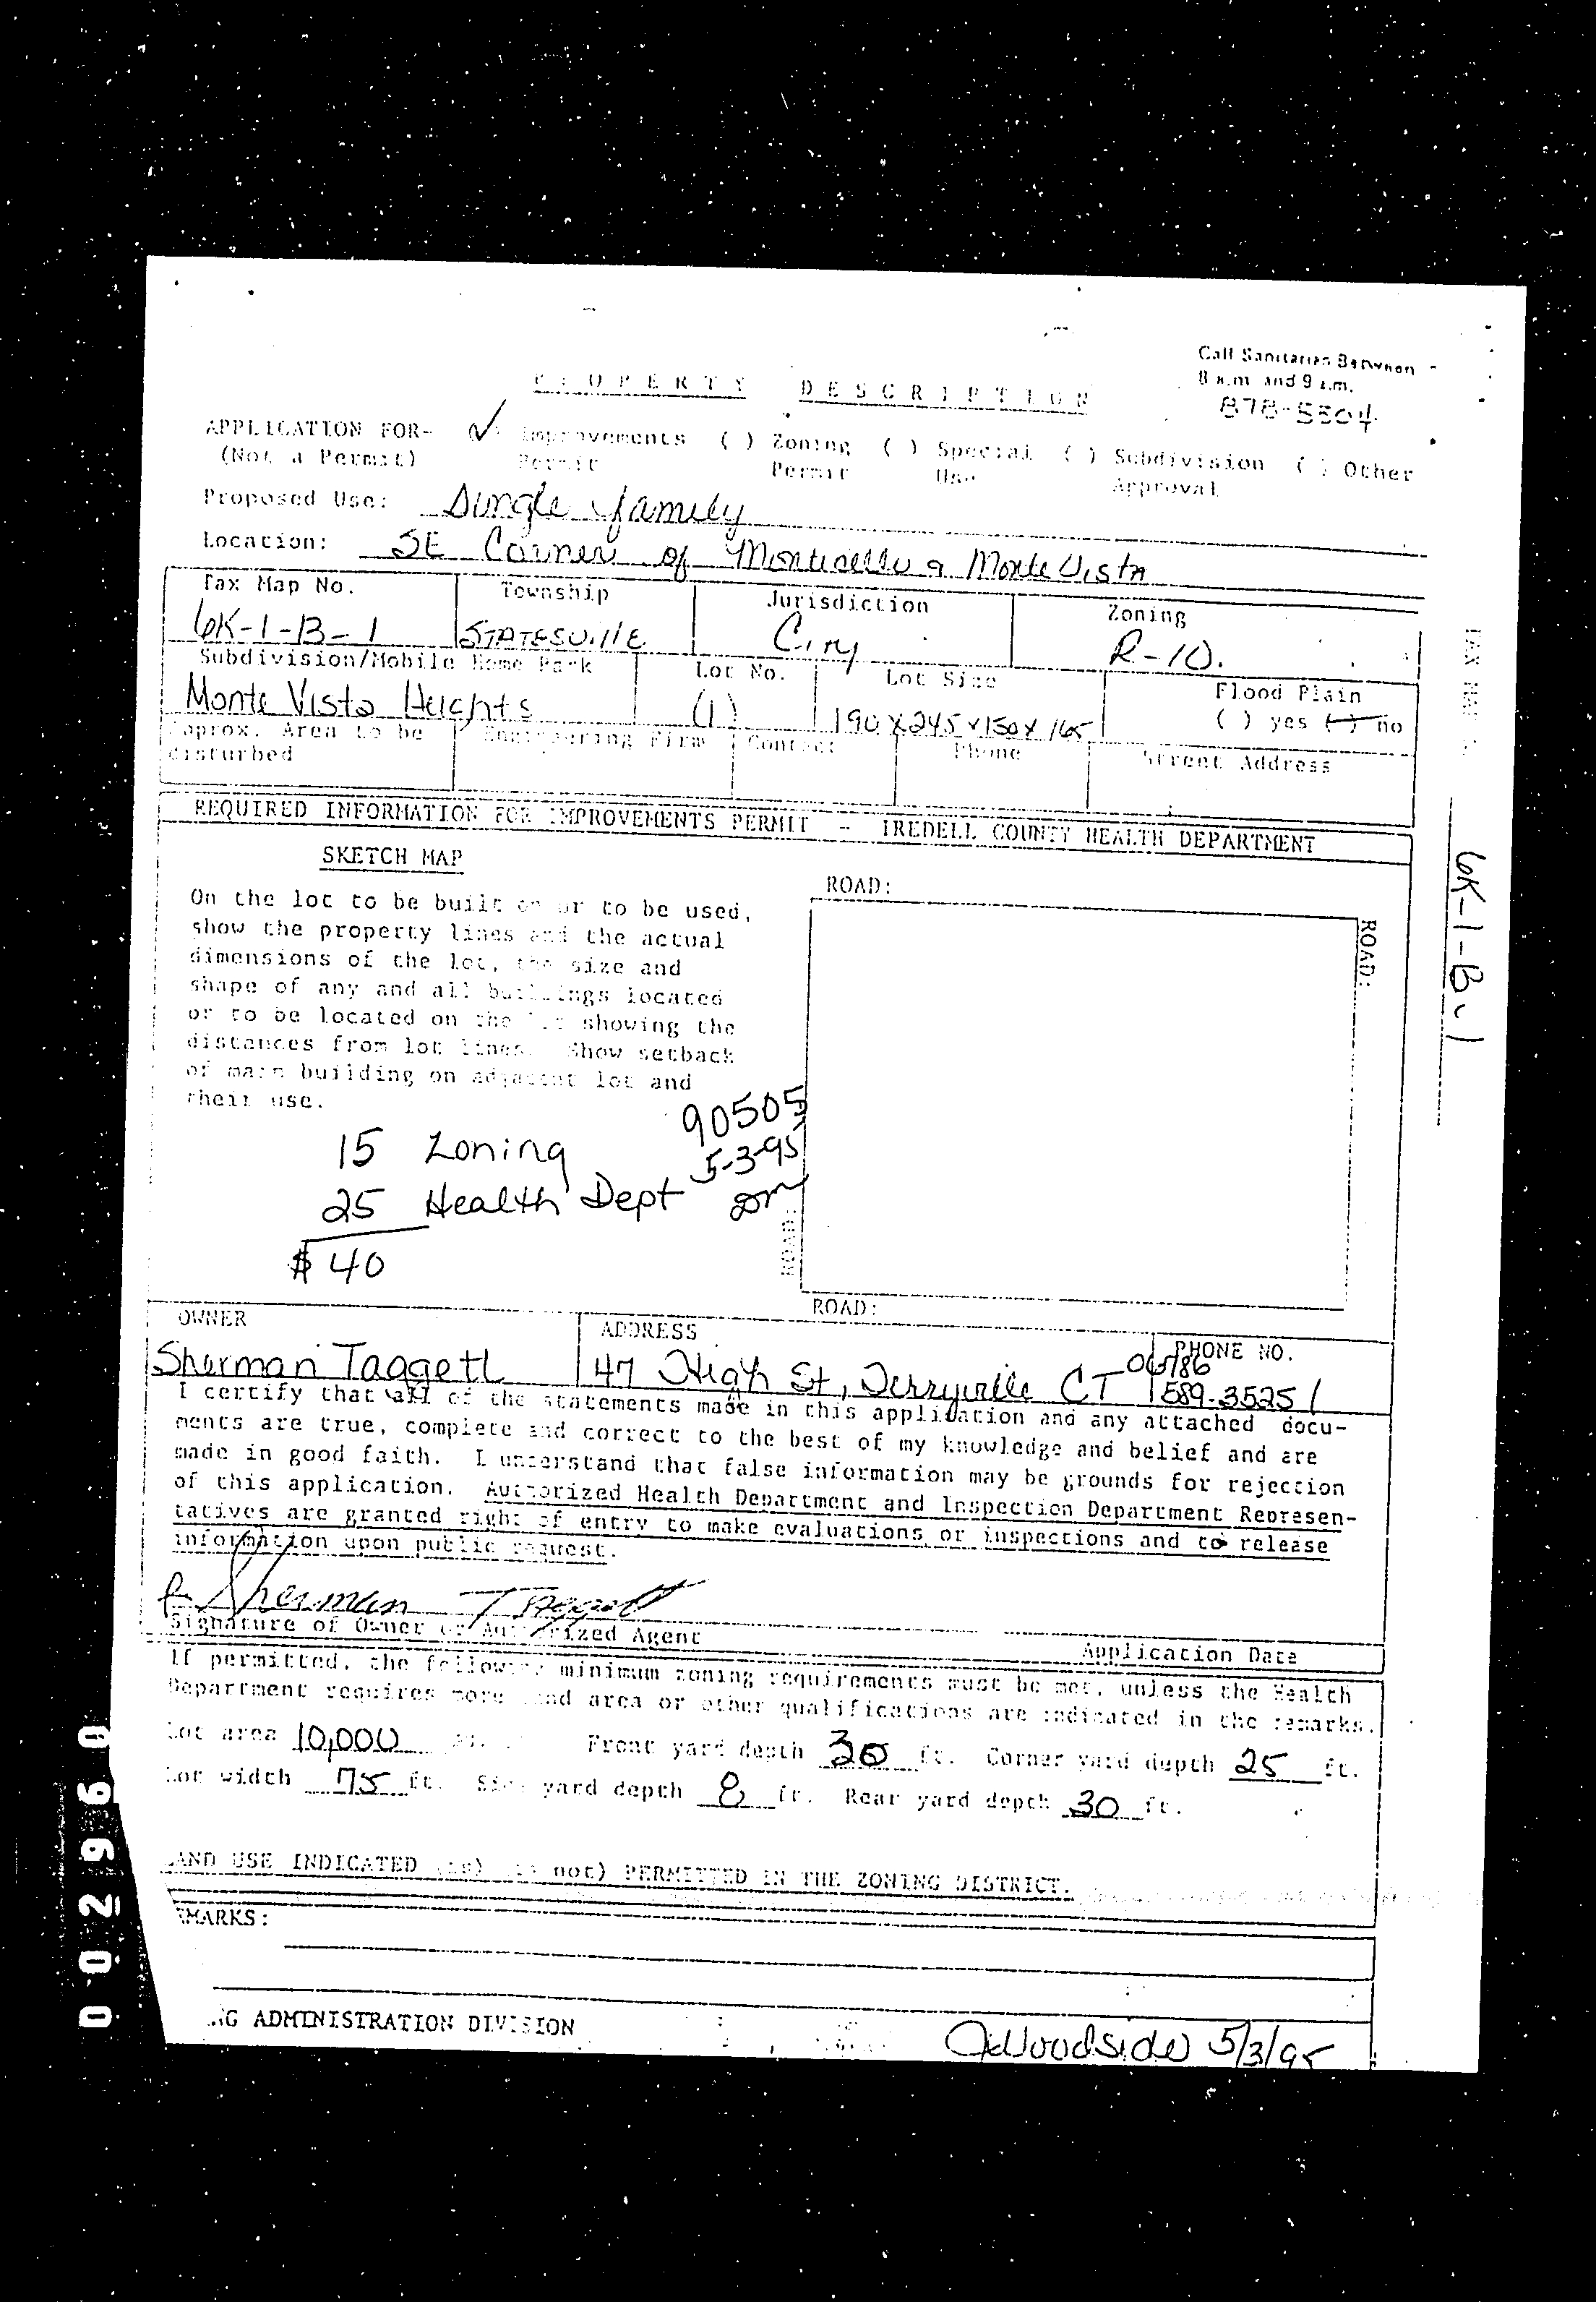 Call Sanitarian Between
8 a.m. and 9 a.m.
878-5304
PROPERTY DESCRIPTION
APPLICATION FOR- (✓) Improvements ( ) Zoning ( ) Special ( ) Subdivision ( ) Other
(Not a Permit) Permit Permit Use Approval
Proposed Use: Single family
Location: SE Corner of Monticello & Monte Vista
Tax Map No. Township Jurisdiction Zoning
6K-1-B-1 STATESVILLE City R-10.
Subdivision/Mobile Home Park Lot No. Lot Size Flood Plain
Monte Vista Heights (1) 190 X 245 X 150 X 165 ( ) yes ( ) no
Approx. Area to be Engineering Firm Contact Phone Street Address
disturbed
REQUIRED INFORMATION FOR IMPROVEMENTS PERMIT - IREDELL COUNTY HEALTH DEPARTMENT
SKETCH MAP
On the lot to be built on or to be used,
show the property lines and the actual
dimensions of the lot, the size and
shape of any and all buildings located
or to be located on the lot showing the
distances from lot lines. Show setback
of main building on adjacent lot and
their use.
ROAD:
ROAD:
ROAD:
ROAD:
TAX MAP
6K-1-B-1
90505
15 Zoning 5-3-95
25 Health Dept
$ 40
OWNER ADDRESS PHONE NO.
Sherman Taggett 47 High St, Terryville CT 06786 589-3525
I certify that all of the statements made in this application and any attached docu-
ments are true, complete and correct to the best of my knowledge and belief and are
made in good faith. I understand that false information may be grounds for rejection
of this application. Authorized Health Department and Inspection Department Represen-
tatives are granted right of entry to make evaluations or inspections and to release
information upon public request.
Sherman Taggett
Signature of Owner or Authorized Agent Application Date
If permitted, the following minimum zoning requirements must be met, unless the Health
Department requires more land area or other qualifications are indicated in the remarks.
Lot area 10,000 Front yard depth 30 ft. Corner yard depth 25 ft.
Lot width 75 ft. Side yard depth 8 ft. Rear yard depth 30 ft.
LAND USE INDICATED (is) (is not) PERMITTED IN THE ZONING DISTRICT.
EMARKS:
NG ADMINISTRATION DIVISION
Woodside 5/3/95
002960